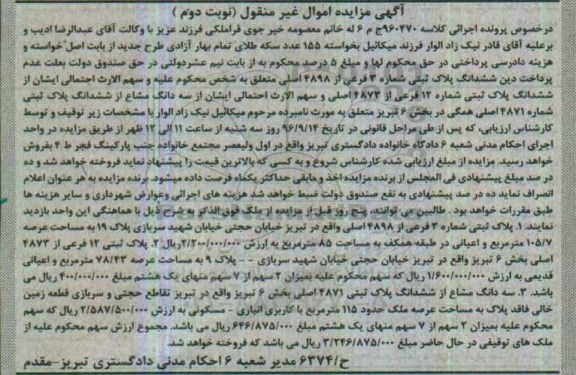 آگهی مزایده اموال غیر منقول (نوبت دوم)
درخصوص پرونده اجرائی کلاسه ۹۶۰۴۷۰ج م ۶ له خانم معصومه خیر جوی قراملکی فرزند عزیز با وکالت آقای عبدالرضا ادیب و
برعلیه آقای قادر نیک زاد الوار فرزند میکائیل بخواسته ۱۵۵ عدد سکه طلای تمام بهار آزادی طرح جدید از بابت اصل خواسته و
هزینه دادرسی پرداختی در حق محکوم لها و مبلغ ۵ درصد محکوم به از بابت نیم عشردولتی در حق صندوق دولت بعلت عدم
پرداخت دین ششدانگ پلاک ثبتی شماره ۳ فرعی از ۴۸۹۸ اصلی متعلق به شخص محکوم علیه و سهم الارث احتمالی ایشان از
ششدانگ پلاک ثبتی شماره ۱۲ فرعی از ۴۸۷۳ اصلی و سهم الارث احتمالی ایشان از سه دانگ مشاع از ششدانگ پلاک ثبتی
شماره ۴۸۷۱ اصلی همگی در بخش ۶ تبریز متعلق به مورث نامبرده مرحوم میکائیل نیک زاد الوار با مشخصات زیر توقیف و توسط
کارشناس ارزیابی، که پس از طی مراحل قانونی در تاریخ ۹۶/۹/۱۴ روز سه شنبه از ساعت ۱۱ الی ۱۲ ظهر از طریق مزایده در واحد
اجرای احکام مدنی شعبه ۶ دادگاه خانواده دادگستری تبریز واقع در اول ولیعصر مجتمع خانواده جنب پارکینگ فجر ط ۴ بفروش
خواهد رسید. مزایده از مبلغ ارزیابی شده کارشناس شروع و به کسی که بالاترین قیمت را پیشنهاد نماید فروخته خواهد شد و ده
در صد مبلغ پیشنهادی فی المجلس از برنده مزایده اخذ و مابقی حداکثر یکماه فرصت داده میشود. برنده مزایده به هر عنوان اعلام
انصراف نماید ده در صد پیشنهادی به نفع صندوق دولت ضبط خواهد شد هزینه های اجرائی وعوارض شهرداری و سایر هزینه ها
طبق مقررات خواهد بود. طالبین می توانند پنج روز قبل از مزایده از ملک فوق الذکر به شرح ذیل با هماهنگی این واحد بازدید
نمایند. ۱. پلاک ثبتی شماره ۳ فرعی از ۴۸۹۸ اصلی واقع در تبریز خیابان حجتی خیابان شهید سربازی پلاک ۱۹ به مساحت عرصه
۱۰۵/۷ مترمربع و اعیانی در طبقه همکف به مساحت ۸۵ مترمربع به ارزش ۲/۲۰۰/۰۰۰/۰۰۰ریال ۲. پلاک ثبتی ۱۲ فرعی از ۴۸۷۳
اصلی بخش ۶ تبریز واقع در تبریز خیابان حجتی خیابان شهید سربازی -- پلاک ۹ به مساحت عرصه ۷۸/۴۳ مترمربع و اعیانی
قدیمی به ارزش ۱/۶۰۰/۰۰۰/۰۰۰ ریال می باشد که سهم محکوم علیه بمیزان ۲ سهم از ۷ سهم منهای یک هشتم مبلغ ۴۰۰/۰۰۰/۰۰۰ ریال می
باشد. ۳. سه دانگ مشاع از ششدانگ پلاک ثبتی ۴۸۷۱ اصلی بخش ۶ تبریز واقع در تبریز تقاطع حجتی و سربازی قطعه زمین
خالی فاقد پلاک به مساحت عرصه ملک حدود ۱۱۵ مترمربع با کاربری انباری - مسکونی به ارزش ۲/۵۸۷/۵۰۰/۰۰۰ ریال که سهم
محکوم علیه بمیزان ۲ سهم از ۷ سهم منهای یک هشتم مبلغ ۶۴۶/۸۷۵/۰۰۰ ریال می باشد. مجموع ارزش سهم محکوم علیه از
ملک های توقیفی در حال حاضر مبلغ ۳/۲۴۶/۸۷۵/۰۰۰ ریال می باشد که فروخته خواهد شد.
ح/۶۳۷۴ مدیر شعبه ۶ احکام مدنی دادگستری تبریز-مقدم